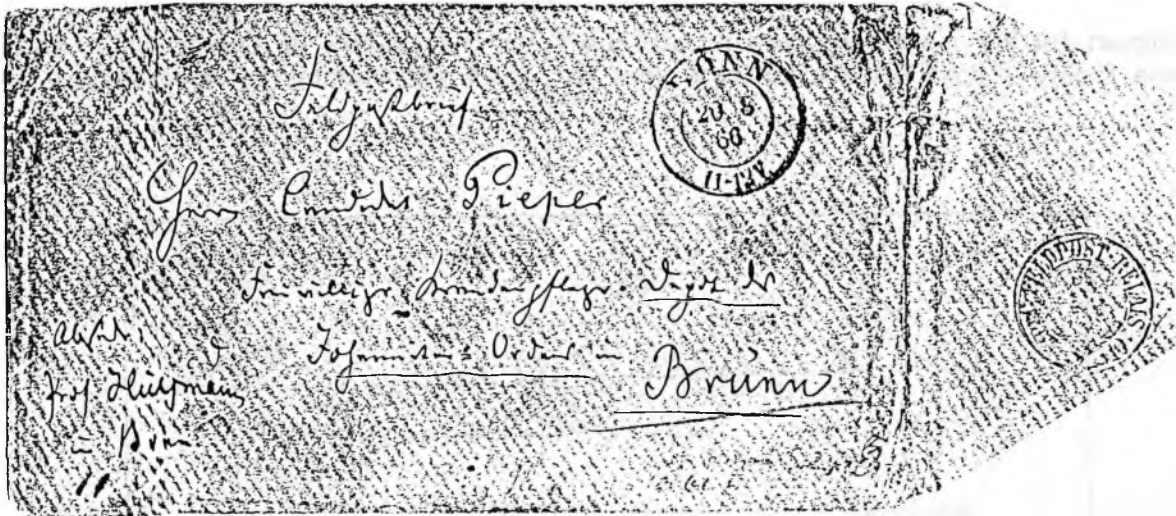 Feldpostbrief
BONN
20 8
66
11-12V.
Herrn Candidat Pieper
Freiwilliger Krankenpfleger. Depot des
Johanniter-Ordens in
Brünn
Abs.
Prof.
in Bonn
FELDPOST-RELAIS